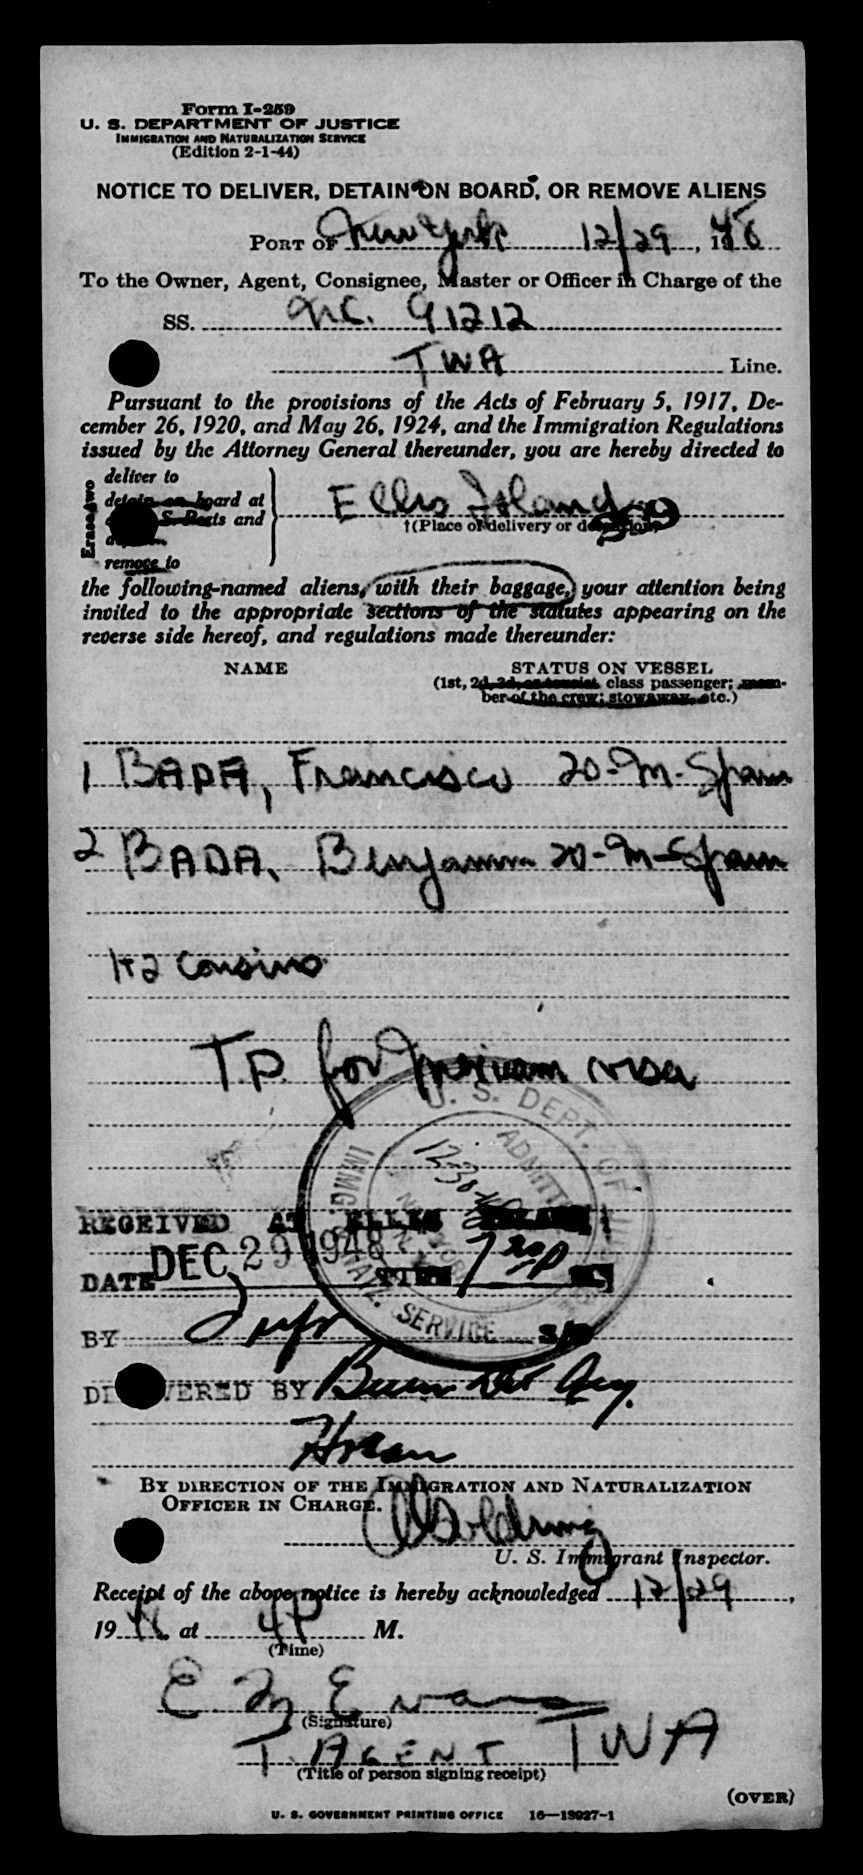 Form I-259
U. S. DEPARTMENT OF JUSTICE
IMMIGRATION AND NATURALIZATION SERVICE
(Edition 2-1-44)
NOTICE TO DELIVER, DETAIN ON BOARD, OR REMOVE ALIENS
PORT OF New York 12/29, 1948
To the Owner, Agent, Consignee, Master or Officer in Charge of the
SS. NC. 91212
TWA Line.
Pursuant to the provisions of the Acts of February 5, 1917, De-
cember 26, 1920, and May 26, 1924, and the Immigration Regulations
issued by the Attorney General thereunder, you are hereby directed to
Erase two
deliver to
detain on board at
S. Regis and
remove to
Ellis Island
†(Place of delivery or detention) 559
the following-named aliens, with their baggage, your attention being
invited to the appropriate sections of the statutes appearing on the
reverse side hereof, and regulations made thereunder:
NAME STATUS ON VESSEL
(1st, 2d, 3d, or tourist class passenger; mem-
ber of the crew; stowaway, etc.)
1 BADA, Francisco 20-M-Spain
2 BADA, Benjamin 20-M-Spain
1+2 cousins
T.P. for Mexican visa
U. S. DEPT. OF JUSTICE
ADMITTED
12-30-48
NEW YORK, N.Y.
IMMG. & NATZ. SERVICE
RECEIVED AT ELLIS ISLAND
DATE DEC 29 1948 TIME 7 30 P M.
BY
DELIVERED BY
BY DIRECTION OF THE IMMIGRATION AND NATURALIZATION
OFFICER IN CHARGE.
U. S. Immigrant Inspector.
Receipt of the above notice is hereby acknowledged 12/29,
1948 at 4P M.
(Time)
E M Evans
(Signature)
T. AGENT TWA
(Title of person signing receipt)
(OVER)
U. S. GOVERNMENT PRINTING OFFICE 16—13927-1